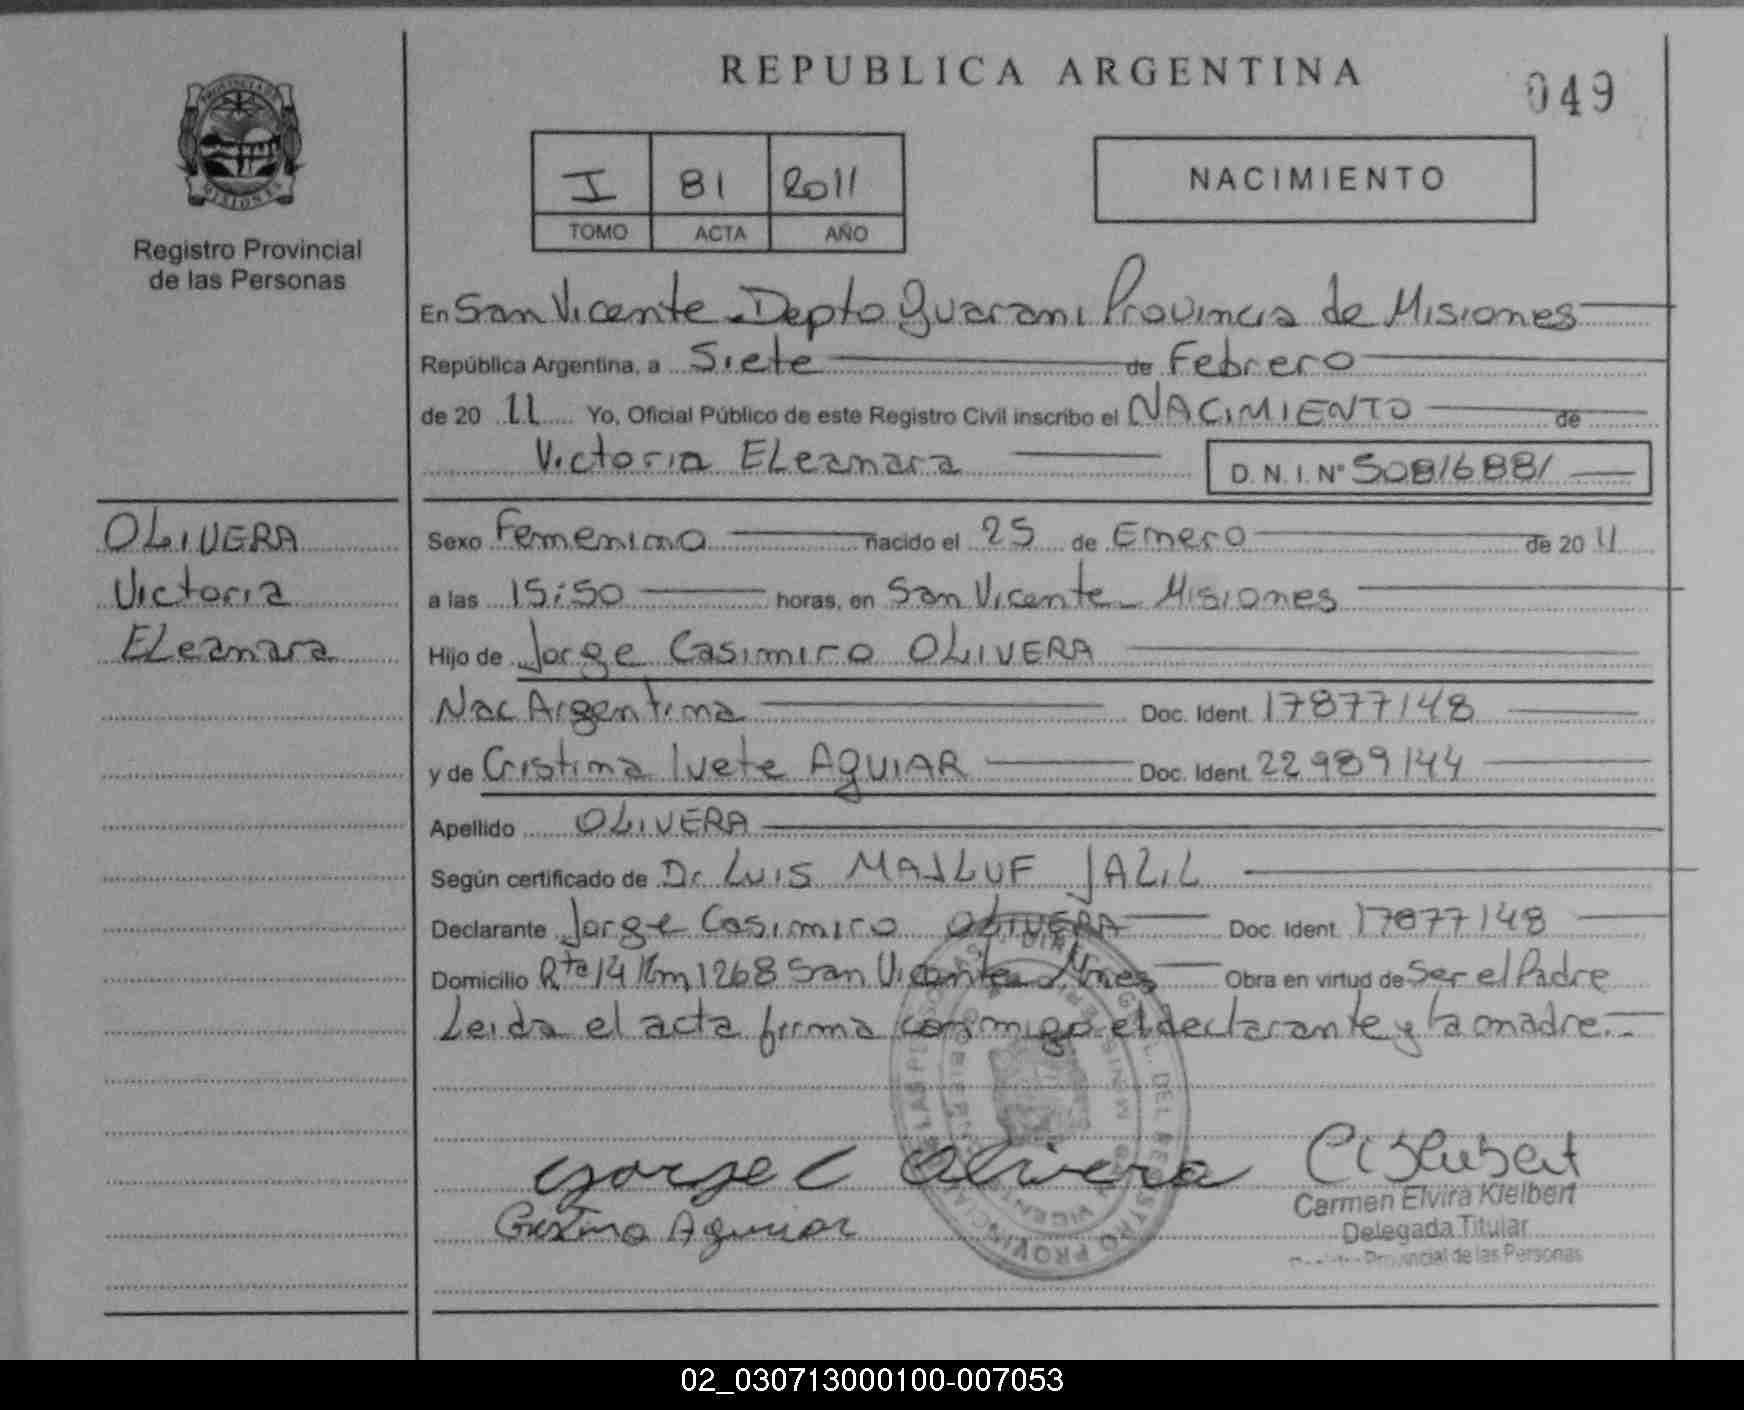 REPUBLICA ARGENTINA
049
I 81 2011
TOMO ACTA AÑO
NACIMIENTO
PROVINCIA DE
MISIONES
Registro Provincial
de las Personas
En San Vicente - Depto Guarani Provincia de Misiones
República Argentina, a Siete de Febrero
de 20 11 Yo, Oficial Público de este Registro Civil inscribo el NACIMIENTO de
Victoria ELeanara D. N. I. Nº 50816881
OLIVERA
Victoria
ELeanara
Sexo Femenino nacido el 25 de Enero de 20 11
a las 15:50 horas, en San Vicente - Misiones
Hijo de Jorge Casimiro OLIVERA
Nac Argentina Doc. Ident. 17877148
y de Cristina Ivete AGUIAR Doc. Ident. 22989144
Apellido OLIVERA
Según certificado de Dr. LUIS MAJLUF JALIL
Declarante Jorge Casimiro OLIVERA Doc. Ident. 17877148
Domicilio Rta 14 Km 1268 San Vicente - Mnes Obra en virtud de Ser el Padre
Leida el acta firma conmigo el declarante y la madre.-
Jorge C Olivera
Cristina Aguiar
Carmen Elvira Kielbert
Delegada Titular
Provincial de las Personas
02_030713000100-007053